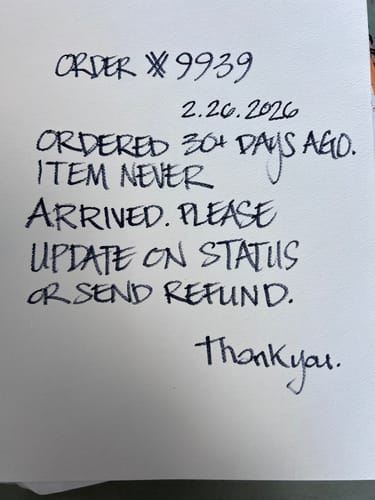 ORDER #9939
2.26.2026
ORDERED 30+ DAYS AGO.
ITEM NEVER
ARRIVED. PLEASE
UPDATE ON STATUS
OR SEND REFUND.
Thank you.